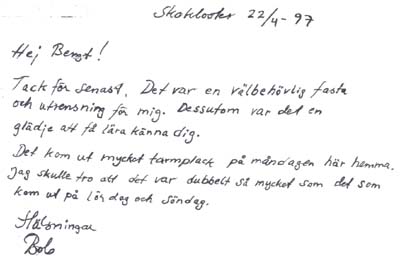 Skokloster 22/4-97
Hej Bengt!
Tack för senast. Det var en välbehövlig fasta
och utrensning för mig. Dessutom var det en
glädje att få lära känna dig.
Det kom ut mycket tarmplack på måndagen här hemma.
Jag skulle tro att det var dubbelt så mycket som det som
kom ut på lördag och söndag.
Hälsningar
Bob